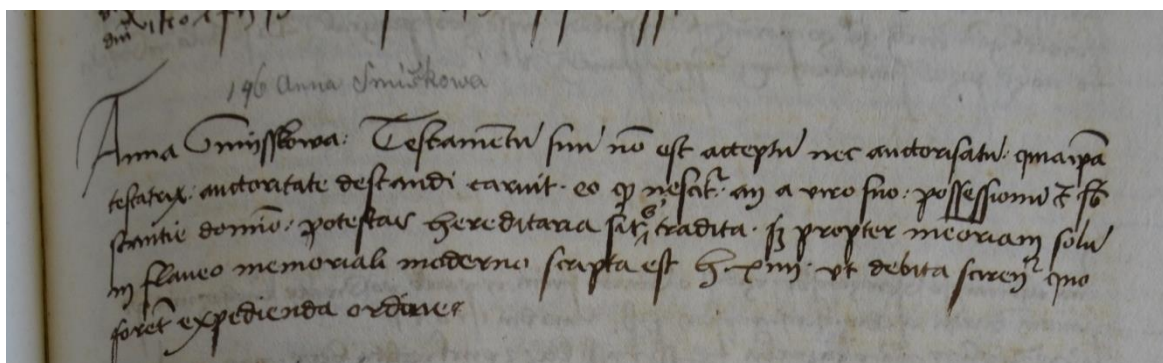 196 Anna Smiškowa
Anna Smysskowa. Testamētū suū nō est acceptū nec auctorisatū. quia ip̄a
testatrix. auctoritate destandi caruit. eo qꝫ nescit̃. an a viro suo. possessionū et sb
stantie domīo. potestas hereditaria sit ei tradita. sꝫ propter meoriam solū
in flaueo memoriali moderno scripta est h xiiii. vt debita sciren̄t quo
foret expedienda ordine